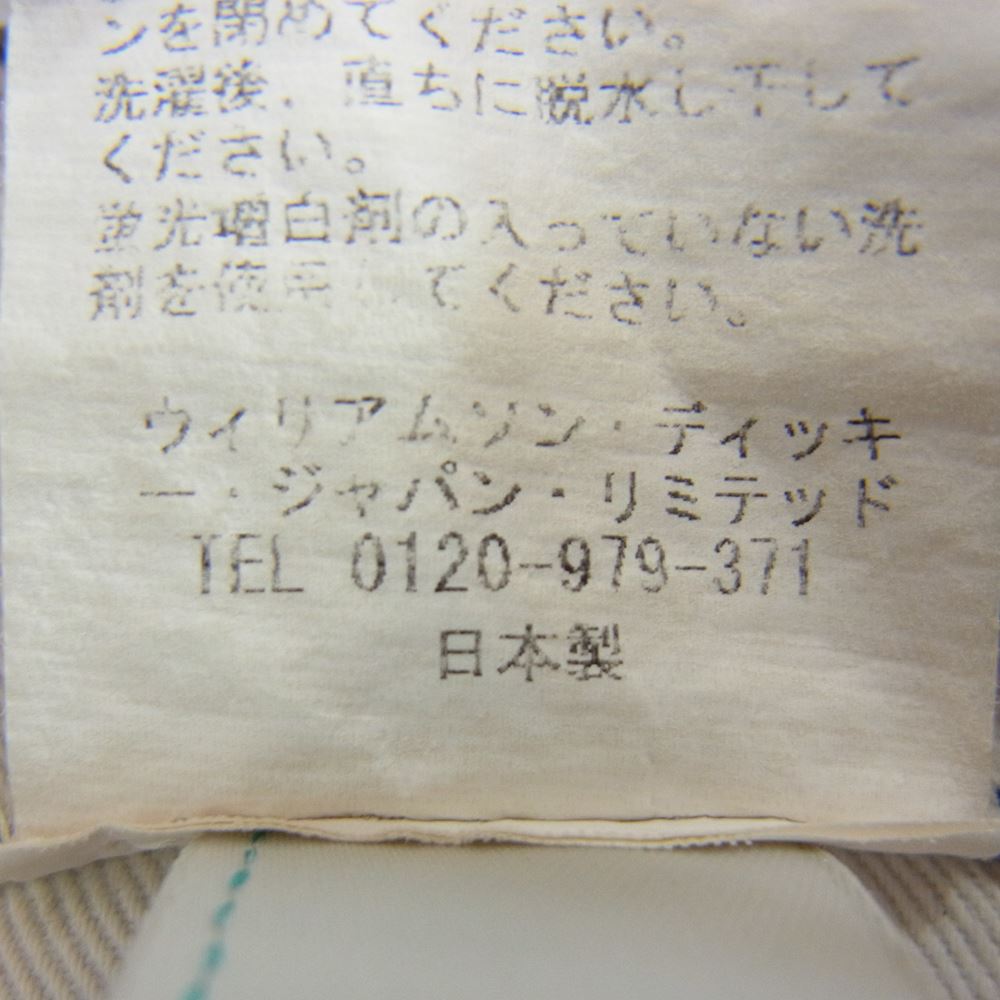 ンを閉めてください。
洗濯後、直ちに脱水し干して
ください。
蛍光増白剤の入っていない洗
剤を使用してください。
ウィリアムソン・ディッキ
ー・ジャパン・リミテッド
TEL 0120-979-371
日本製